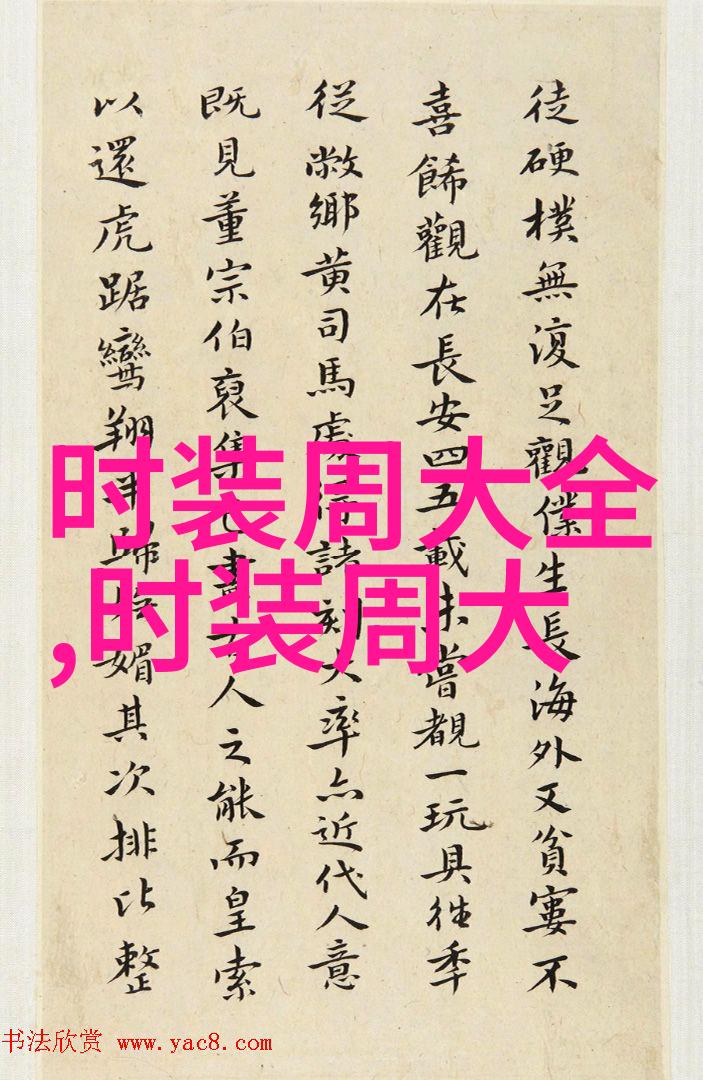 徒硬樸無復足觀僕生長海外又貧窶不
喜餙觀在長安四五載未嘗覩一玩具往季
從敝鄉黄司馬處得諸刻大率亦近代人意
既見董宗伯裒集人之能而皇索
以還虎踞鸞翔歸媚其次排比整
时装周大全
,时装周大
书法欣赏 www.yac8.com